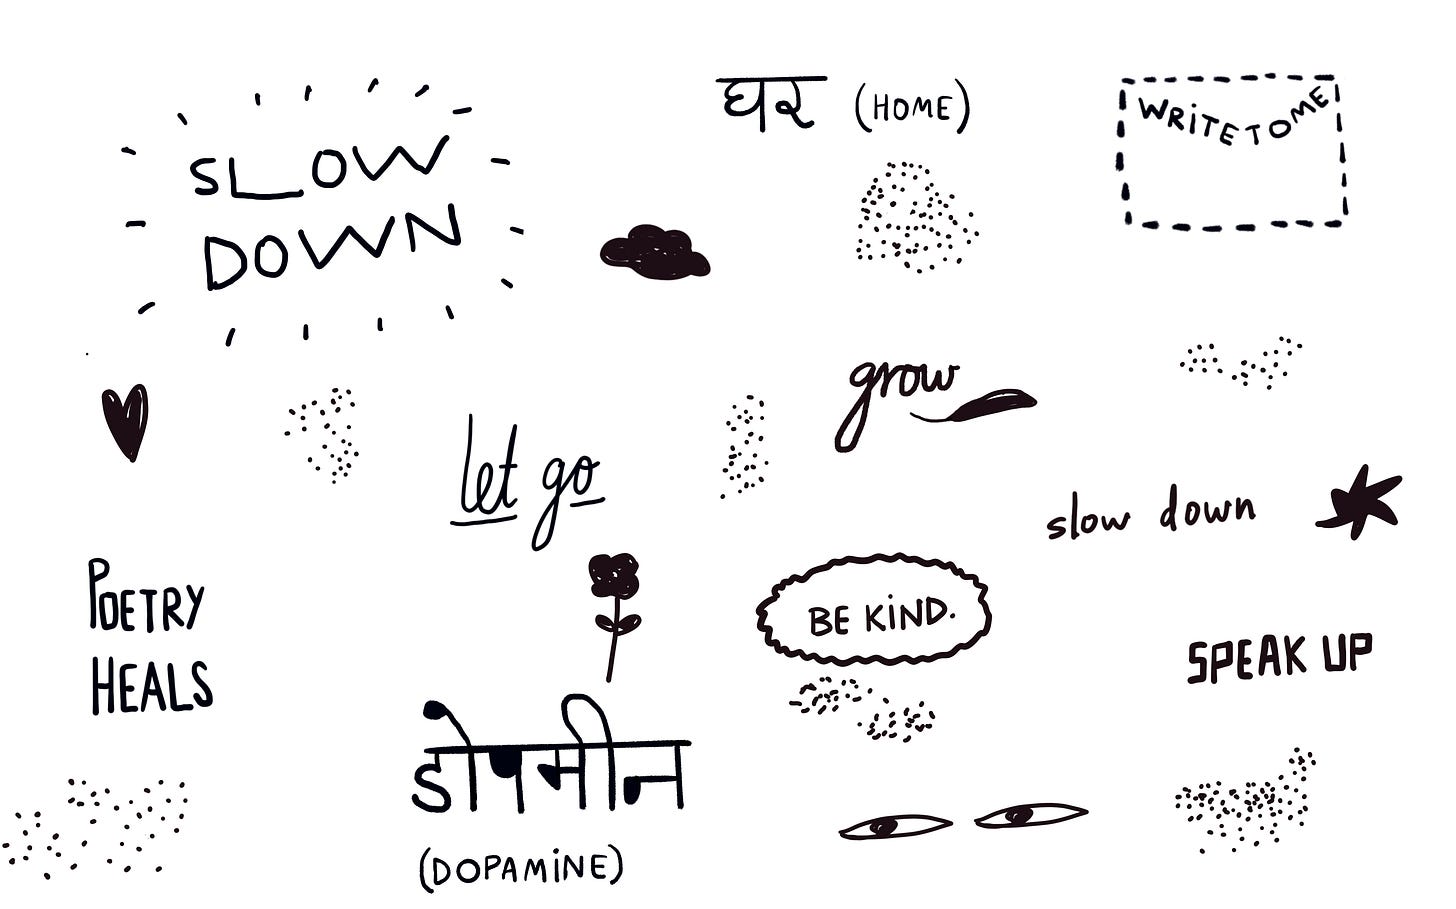 घर (HOME)
WRITE TO ME
SLOW
DOWN
grow
let go
slow down
POETRY
HEALS
BE KIND.
SPEAK UP
डोपमीन
(DOPAMINE)